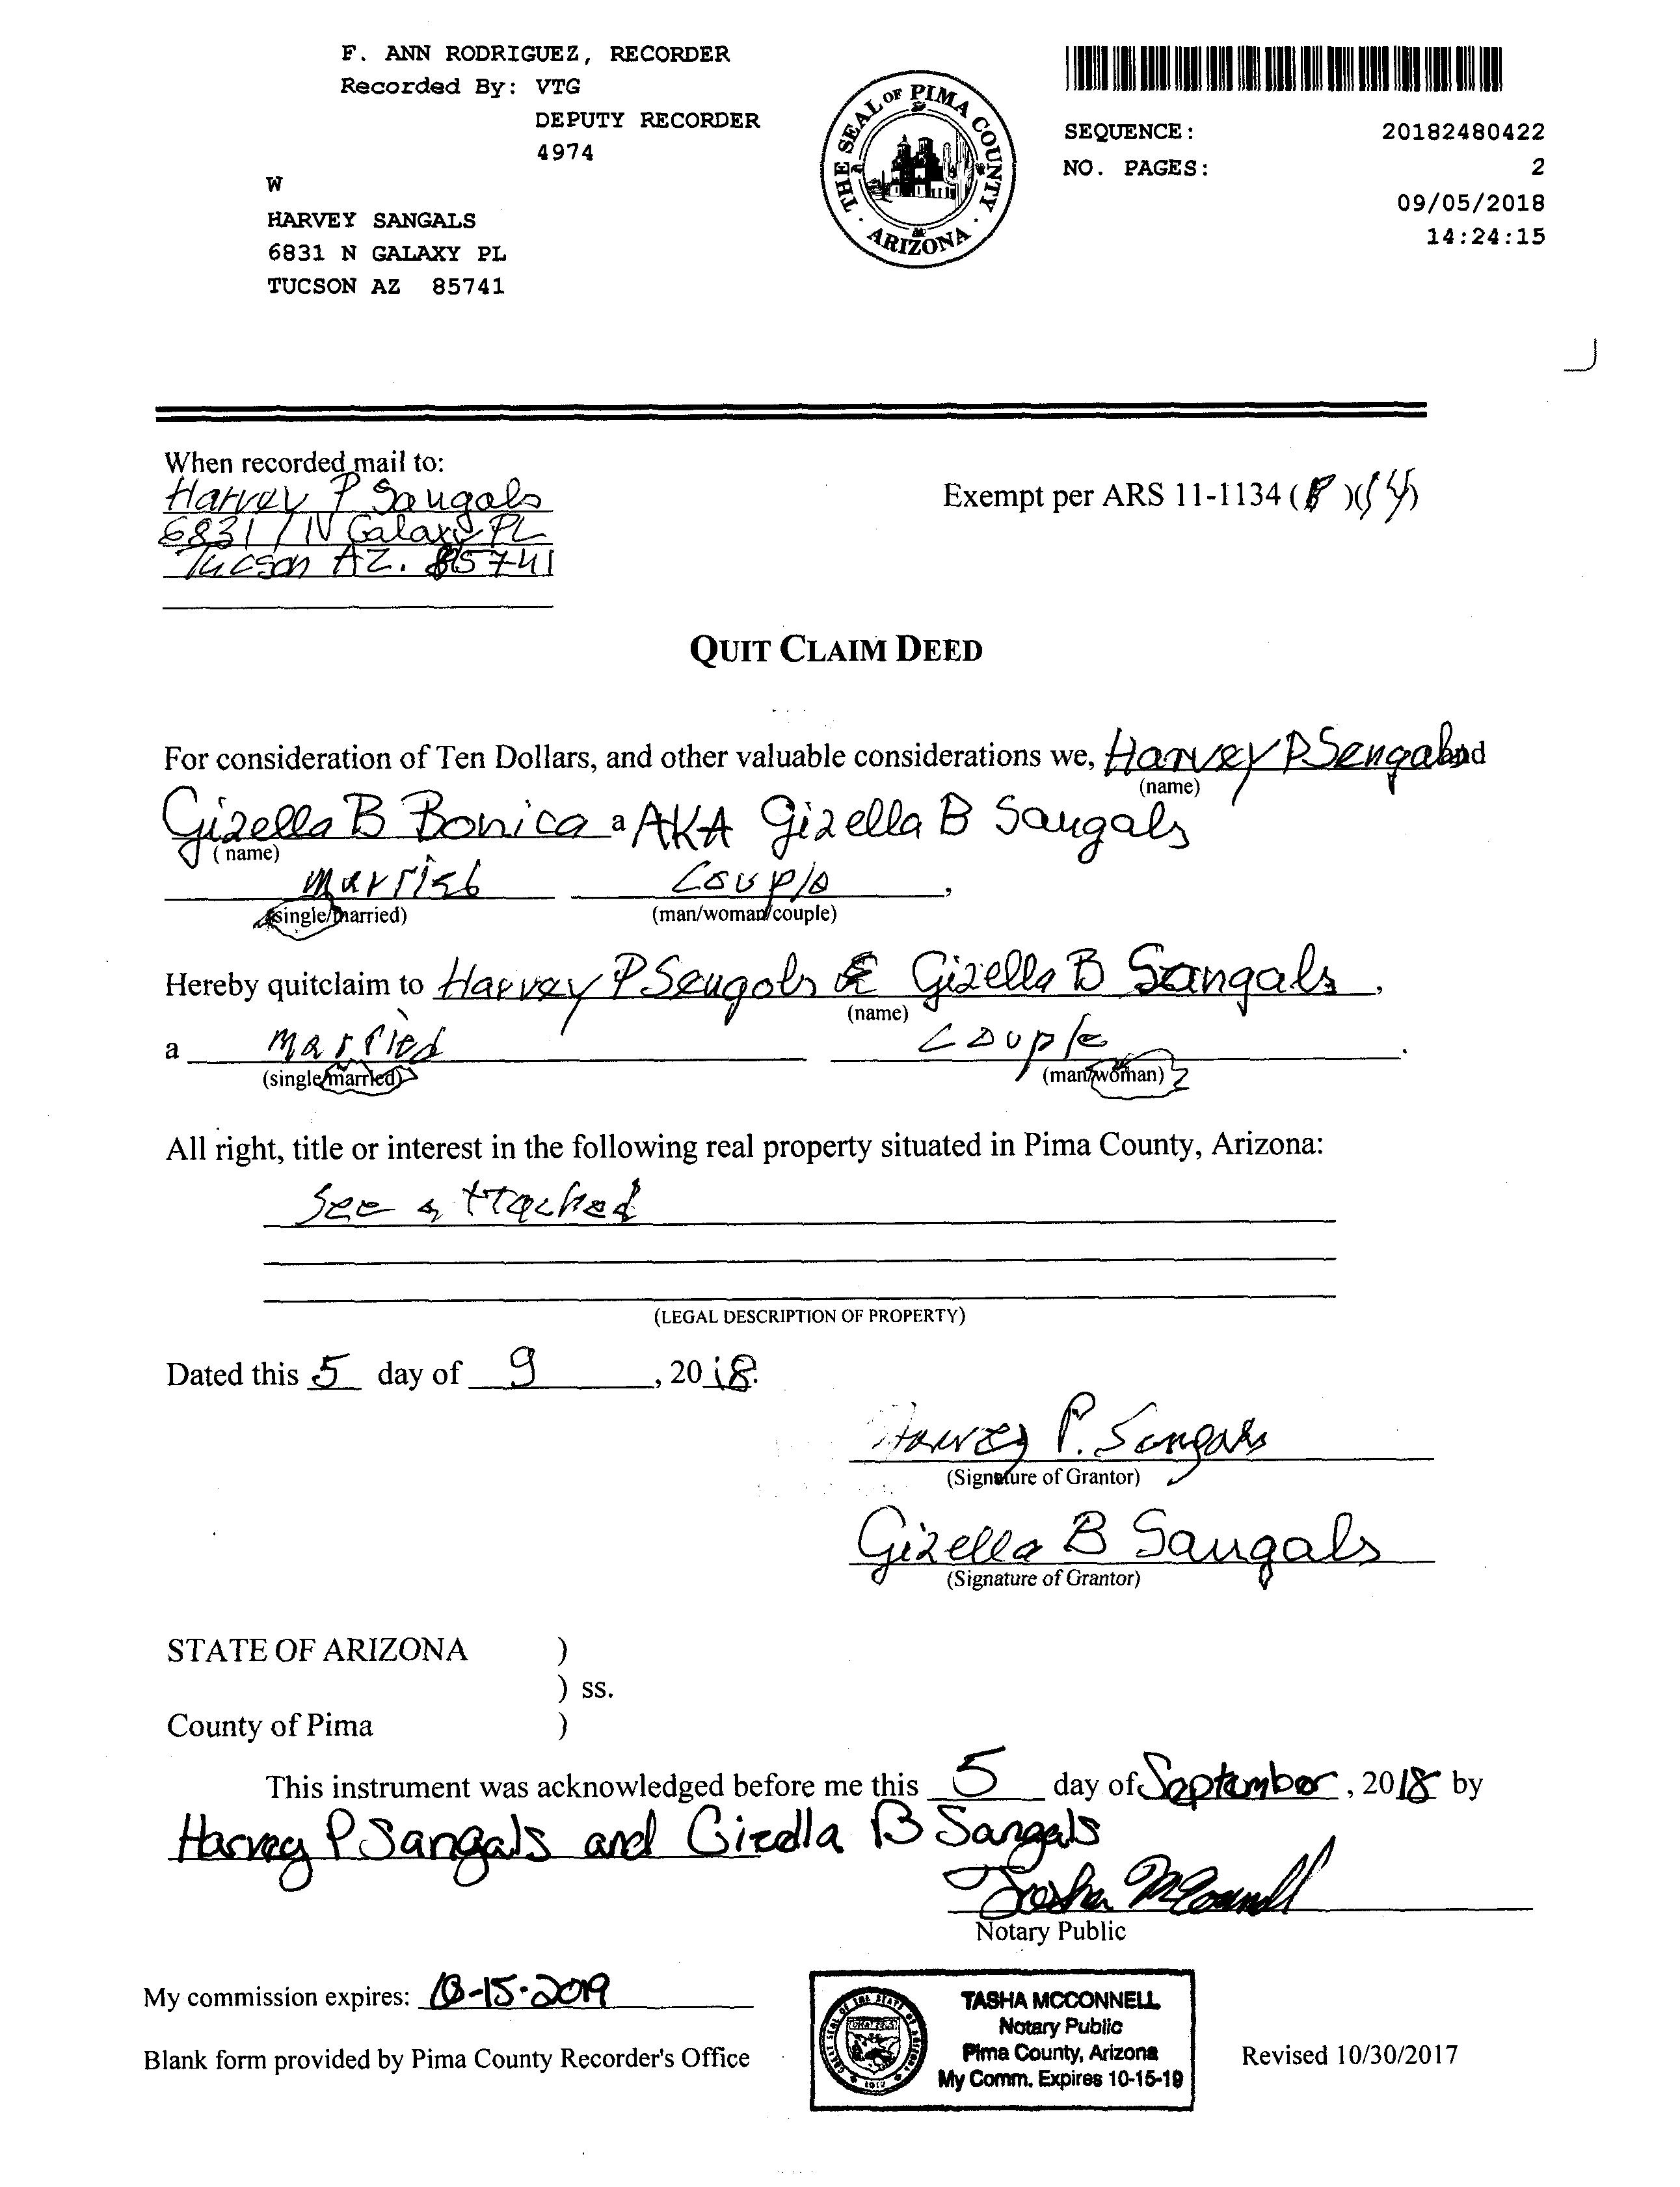 F. ANN RODRIGUEZ, RECORDER
Recorded By: VTG
DEPUTY RECORDER
4974
W
HARVEY SANGALS
6831 N GALAXY PL
TUCSON AZ 85741
THE SEAL OF PIMA COUNTY
ARIZONA
SEQUENCE: 20182480422
NO. PAGES: 2
09/05/2018
14:24:15
When recorded mail to:
Harvey P Sangals
6831 N Galaxy PL
Tucson AZ. 85741
Exempt per ARS 11-1134 ( )( )
QUIT CLAIM DEED
For consideration of Ten Dollars, and other valuable considerations we, Harvey P Sangals and
(name)
Gizella B Bonica a AKA Gizella B Sangals
(name)
married couple,
(single/married) (man/woman/couple)
Hereby quitclaim to Harvey P Sangals & Gizella B Sangals,
(name)
a married couple.
(single/married) (man/woman)
All right, title or interest in the following real property situated in Pima County, Arizona:
See attached
(LEGAL DESCRIPTION OF PROPERTY)
Dated this 5 day of 9, 2018.
Harvey P. Sangals
(Signature of Grantor)
Gizella B Sangals
(Signature of Grantor)
STATE OF ARIZONA )
) ss.
County of Pima )
This instrument was acknowledged before me this 5 day of September, 2018 by
Harvey P Sangals and Gizella B Sangals
Tasha McConnell
Notary Public
My commission expires: 10-15-2019
Blank form provided by Pima County Recorder's Office
TASHA MCCONNELL
Notary Public
Pima County, Arizona
My Comm. Expires 10-15-19
Revised 10/30/2017